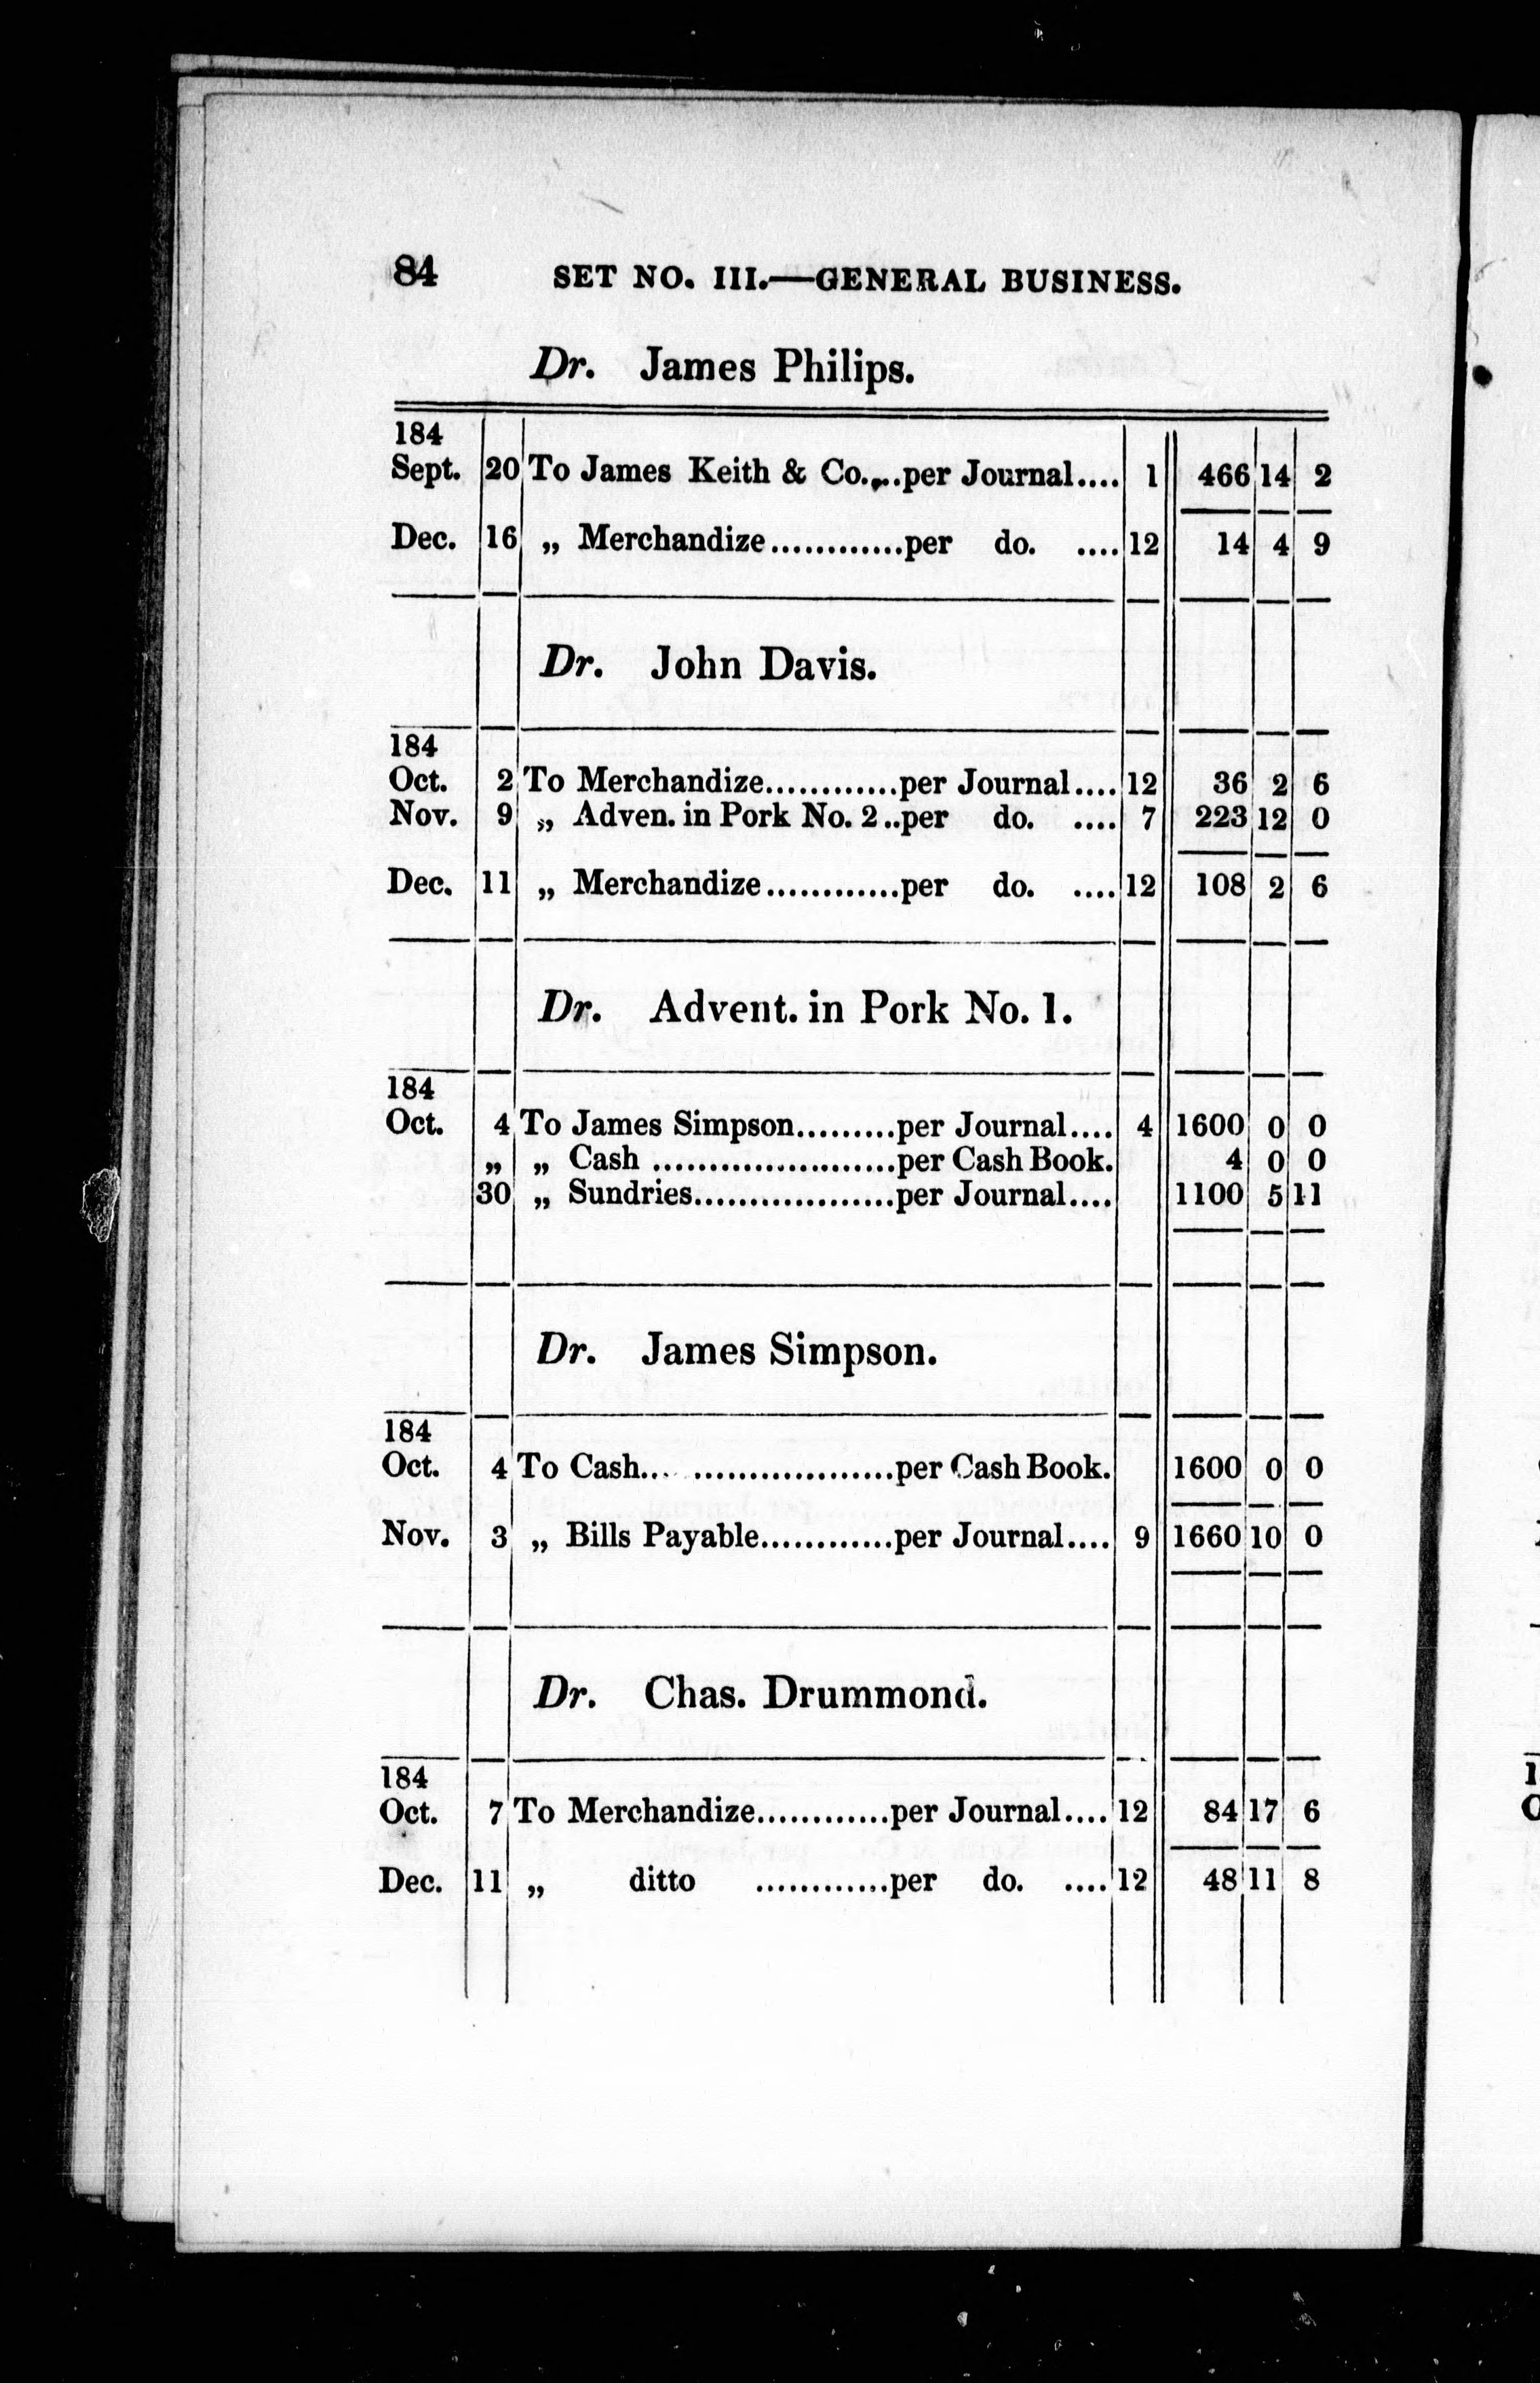 84 SET NO. III.—GENERAL BUSINESS.
Dr. James Philips.
184
Sept. 20 To James Keith & Co....per Journal.... 1 466 14 2
Dec. 16 „ Merchandize............per do. ....12 14 4 9
Dr. John Davis.
184
Oct. 2 To Merchandize............per Journal....12 36 2 6
Nov. 9 „ Adven. in Pork No. 2..per do. .... 7 223 12 0
Dec. 11 „ Merchandize............per do. ....12 108 2 6
Dr. Advent. in Pork No. 1.
184
Oct. 4 To James Simpson.........per Journal.... 4 1600 0 0
„ „ Cash .......................per Cash Book. 4 0 0
30 „ Sundries...................per Journal.... 1100 5 11
Dr. James Simpson.
184
Oct. 4 To Cash... ...................per Cash Book. 1600 0 0
Nov. 3 „ Bills Payable............per Journal.... 9 1660 10 0
Dr. Chas. Drummond.
184
Oct. 7 To Merchandize............per Journal....12 84 17 6
Dec. 11 „ ditto ............per do. ....12 48 11 8